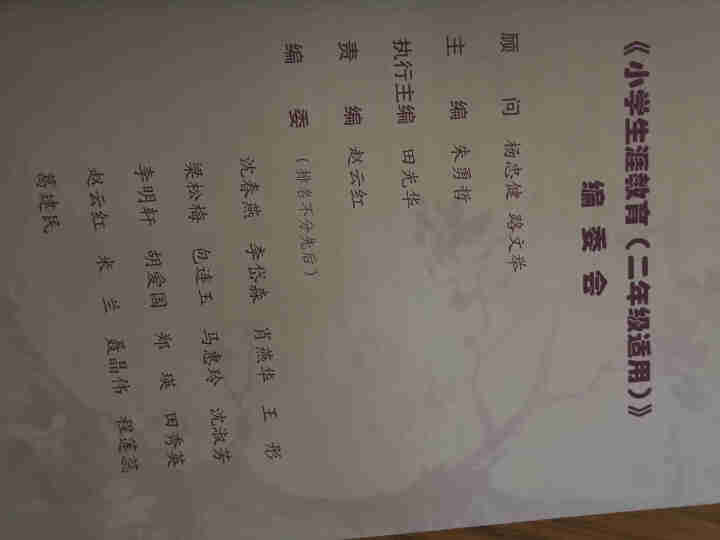 《小学生涯教育（二年级适用）》
编委会
顾 问 杨忠健 路文举
主 编 朱勇哲
执行主编 田光华
责 编 赵云红
编 委 （排名不分先后）
沈春燕 李岱淼 肖燕华 王 彤
梁松梅 包连玉 马惠玲 沈淑芳
李明轩 胡爱国 郑 瑛 田秀英
赵云红 米 兰 聂晶伟 程莲蕊
葛建民